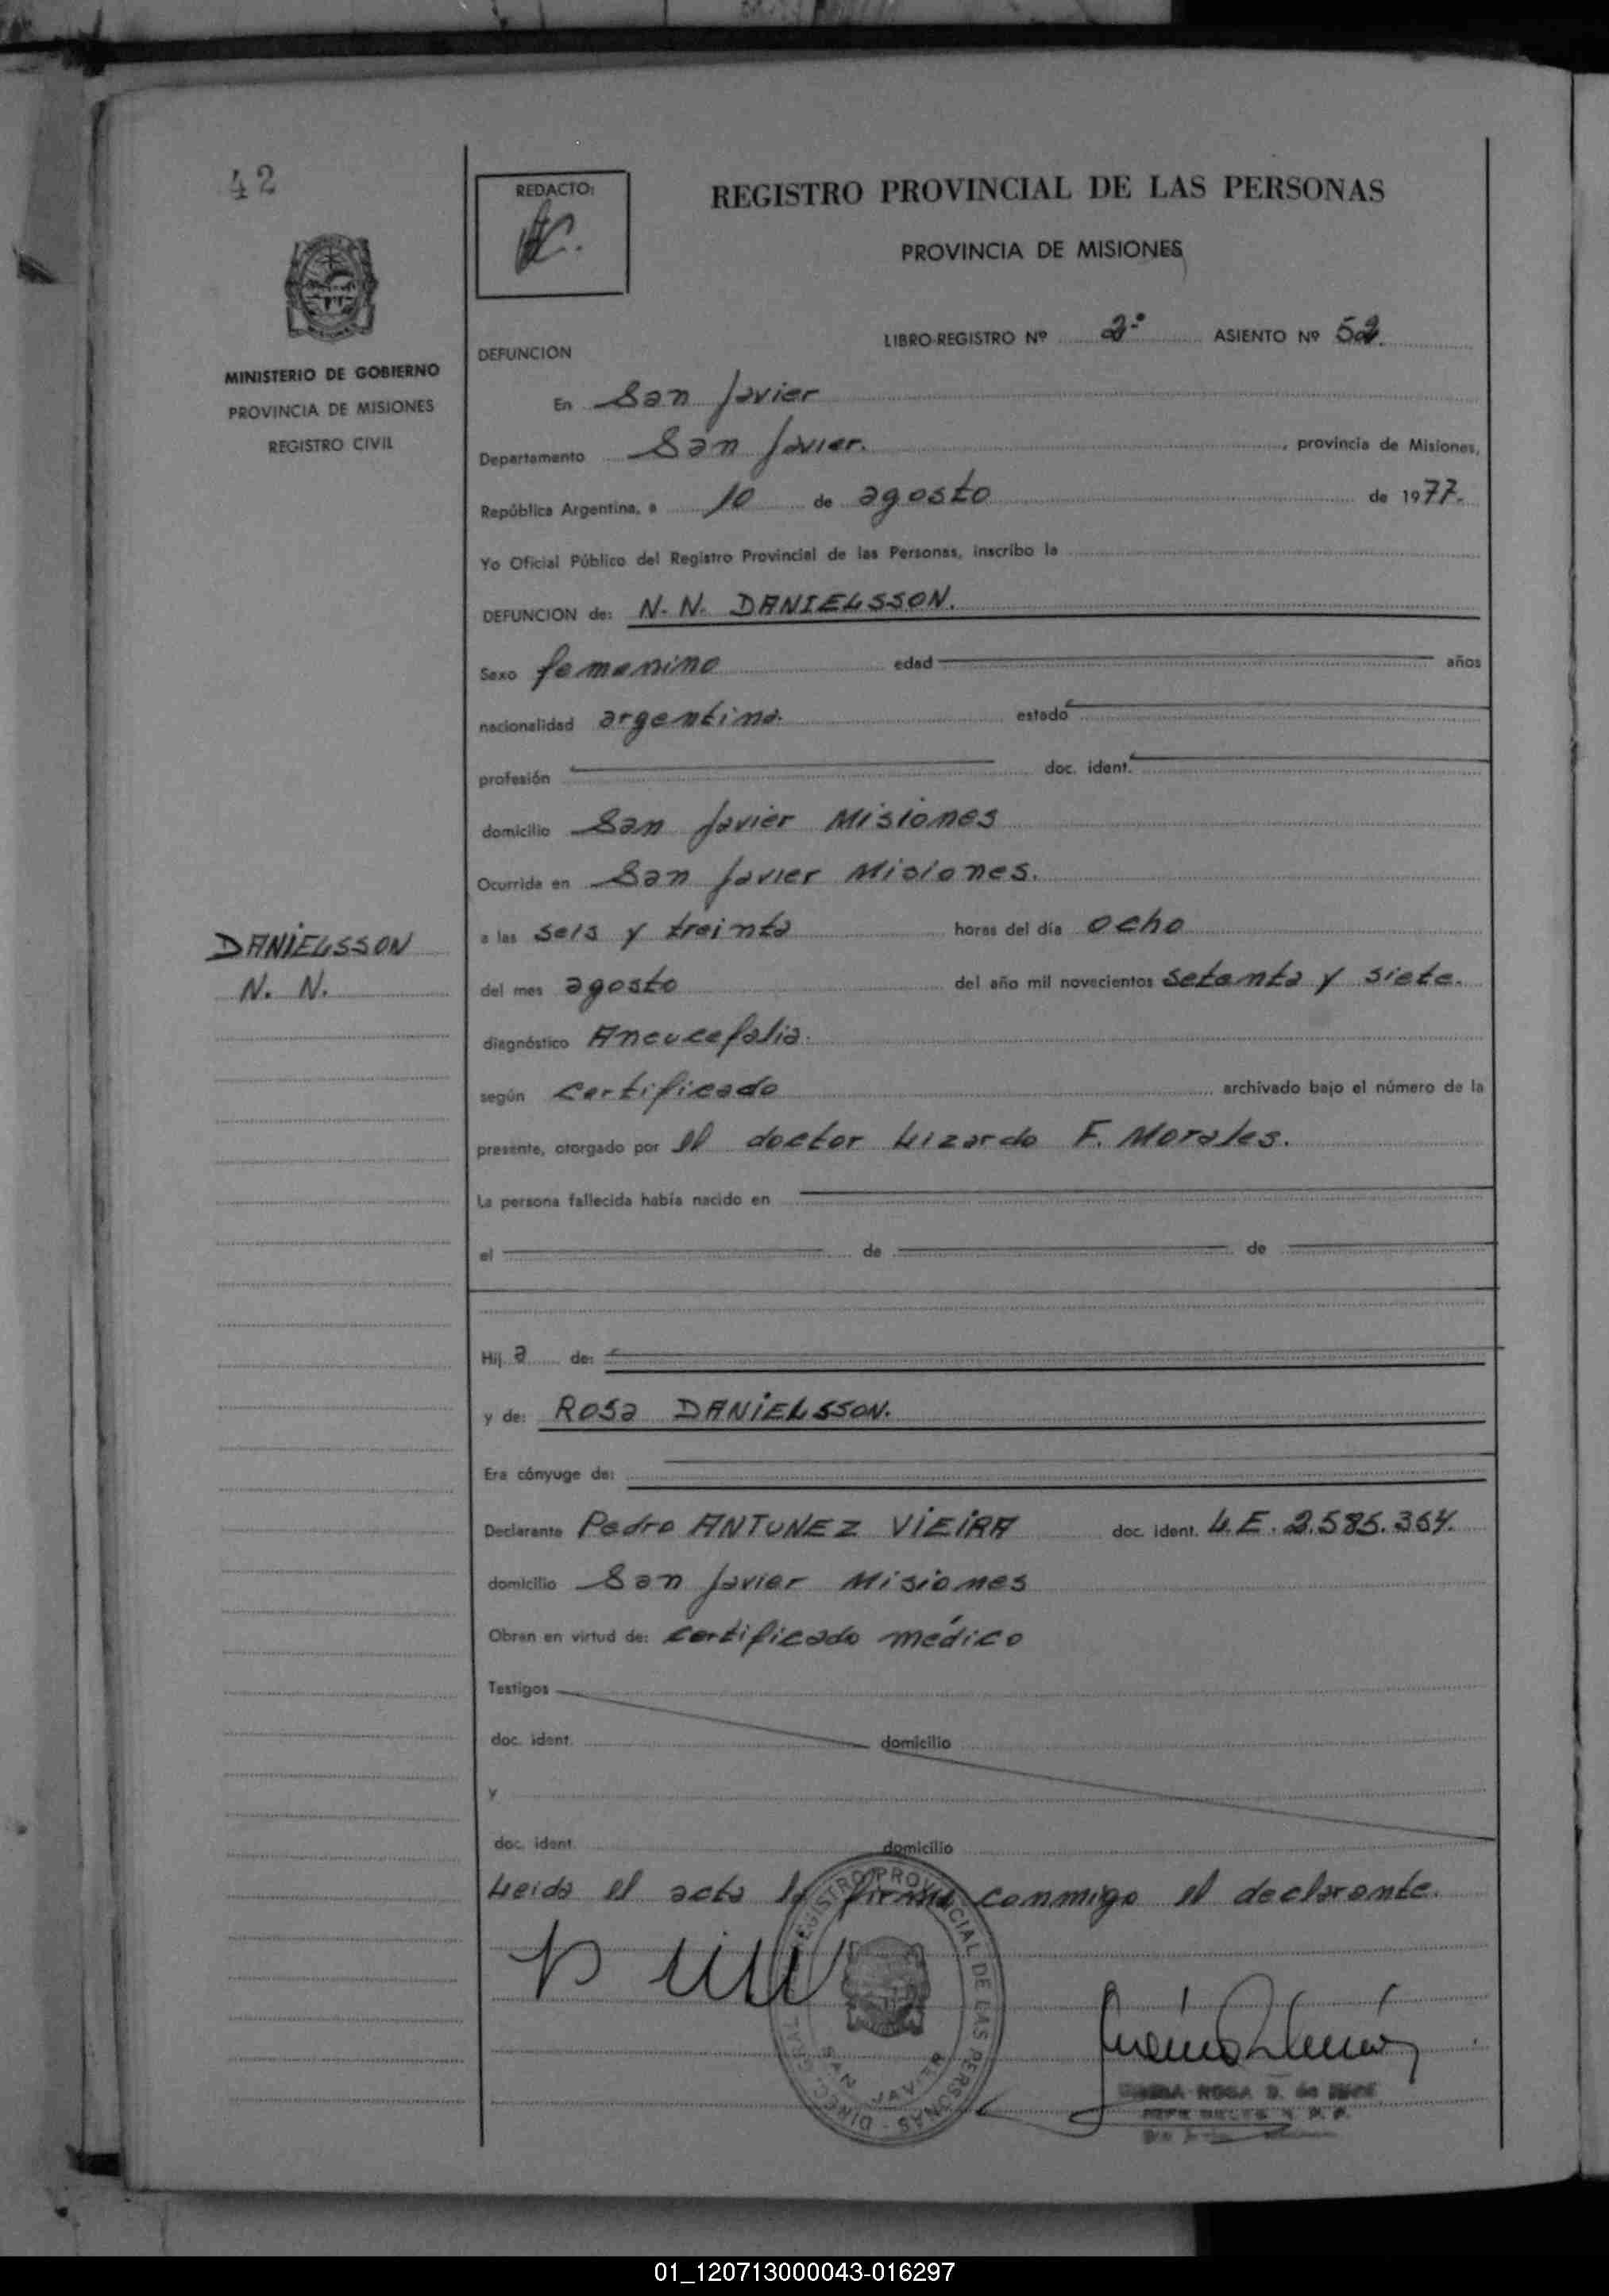 42
REDACTO:
REGISTRO PROVINCIAL DE LAS PERSONAS
PROVINCIA DE MISIONES
MINISTERIO DE GOBIERNO
PROVINCIA DE MISIONES
REGISTRO CIVIL
LIBRO-REGISTRO Nº 2º ASIENTO Nº 52.
DEFUNCION
En San Javier
Departamento San Javier. , provincia de Misiones,
República Argentina, a 10 de agosto de 1977.
Yo Oficial Público del Registro Provincial de las Personas, inscribo la
DEFUNCION de: N. N. DANIELSSON.
Sexo femenino edad años
nacionalidad argentina. estado
profesión doc. ident.
domicilio San Javier Misiones
Ocurrida en San Javier Misiones.
DANIELSSON
N. N.
a las seis y treinta horas del día ocho
del mes agosto del año mil novecientos setenta y siete.
diagnóstico Anencefalia.
según certificado archivado bajo el número de la
presente, otorgado por el doctor Lizardo F. Morales.
La persona fallecida había nacido en
el de de
Hij a de:
y de: Rosa DANIELSSON.
Era cónyuge de:
Declarante Pedro ANTUNEZ VIEIRA doc. ident. L.E. 2.585.364.
domicilio San Javier Misiones
Obran en virtud de: certificado médico
Testigos
doc. ident. domicilio
y
doc. ident. domicilio
Leida el acta la firma conmigo el declarante.
REGISTRO PROVINCIAL DE LAS PERSONAS - DIREC. GRAL.
SAN JAVIER
ROSA
01_120713000043-016297